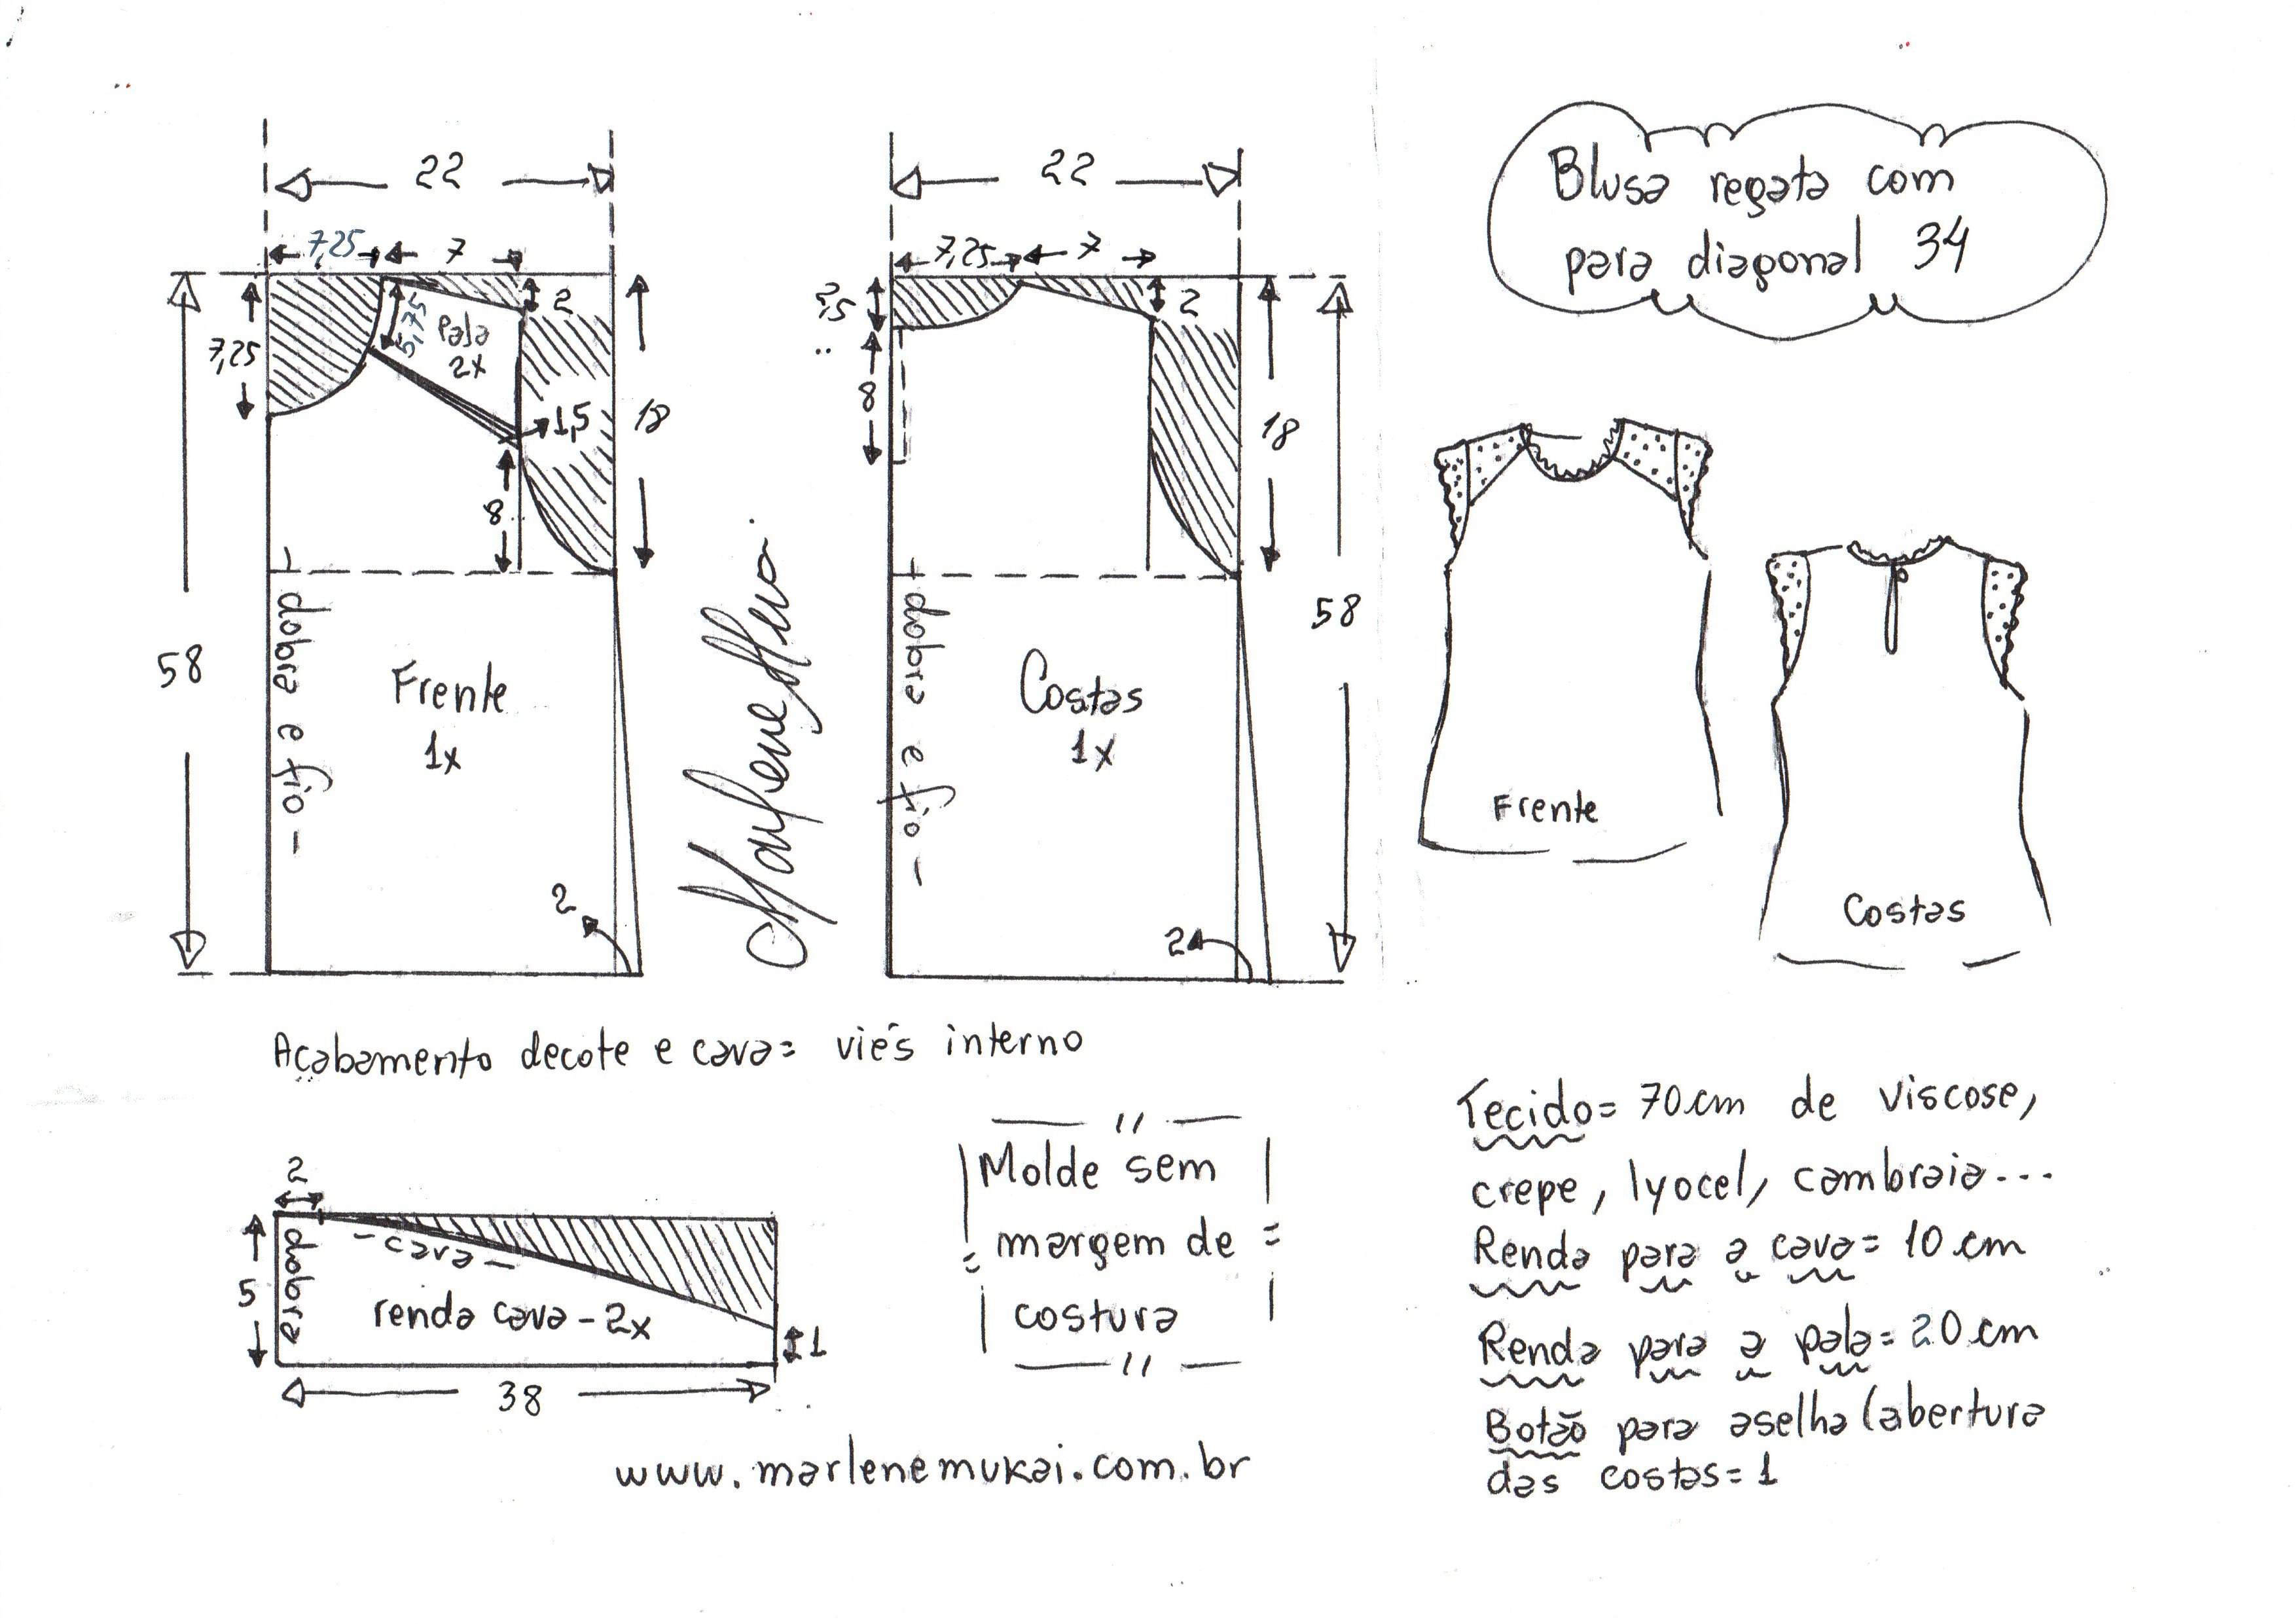 Blusa regata com
para diagonal 34
22
7,25
7
2
5,75
Pala
2x
7,25
1,5
18
8
58
dobra e fio
Frente
1x
2
22
7,25
7
2,5
2
8
18
58
dobra e fio
Costas
1x
2
Marlene Mukai
Frente
Costas
Acabamento decote e cava= viés interno
2
5
dobra
-cava-
renda cava - 2x
1
38
Molde sem
margem de
costura
Tecido= 70cm de viscose,
crepe, lyocel, cambraia...
Renda para a cava= 10cm
Renda para a pala= 20cm
Botão para aselha (abertura
das costas=1
www.marlenemukai.com.br